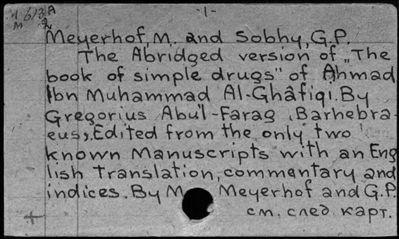 -1-
Meyerhof, M. and Sobhy, G.P.
The Abridged version of „The
book of simple drugs" of Ahmad
Ibn Muhammad Al-Ghâfiqi. By
Gregorius Abu'l-Farag (Barhebra-
eus). Edited from the only two
known Manuscripts with an Eng
lish Translation, commentary and
indices. By M. Meyerhof and G.P.
см. след карт.